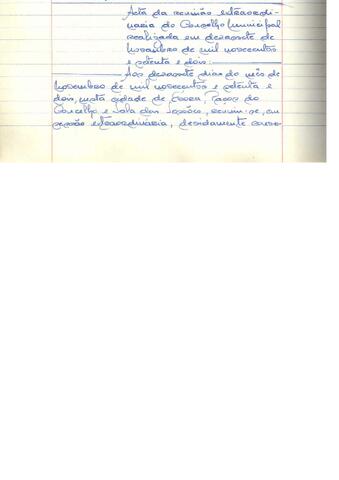 Acta da reunião extraordi-
naria do Conselho Municipal
realizada em dezassete de
Novembro de mil novecentos
e setenta e dois:
Aos dezassete dias do mês de
Novembro de mil novecentos e setenta e
dois, nesta cidade de Évora, Paços do
Concelho e Sala das Sessões, reuniu-se, em
sessão extraordinária, devidamente convo-